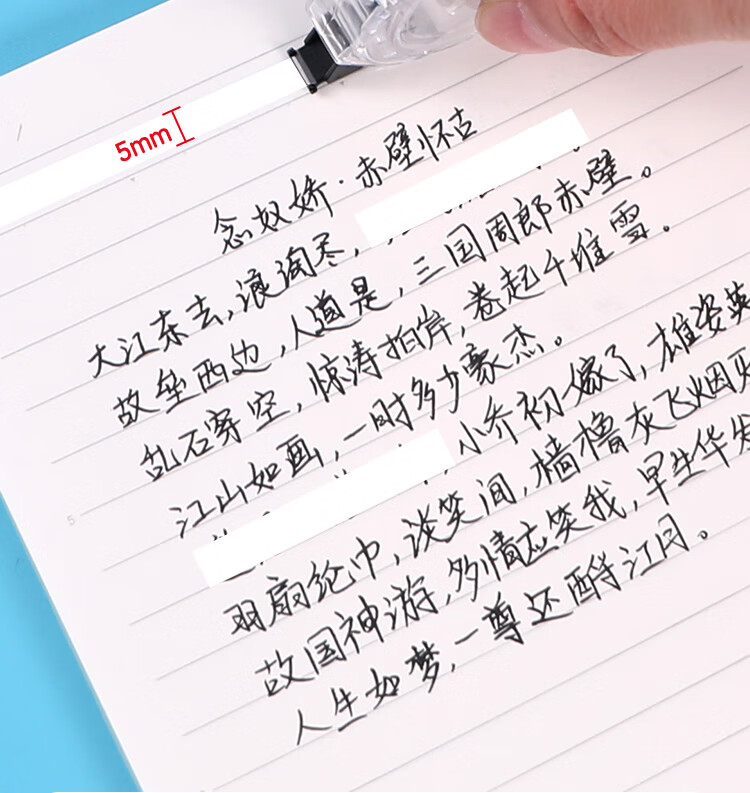 5mm
念奴娇·赤壁怀古
大江东去,浪淘尽,
故垒西边,人道是,三国周郎赤壁。
乱石穿空,惊涛拍岸,卷起千堆雪。
江山如画,一时多少豪杰。
小乔初嫁了,雄姿英
羽扇纶巾,谈笑间,樯橹灰飞烟灭
故国神游,多情应笑我,早生华发
人生如梦,一尊还酹江月。
5